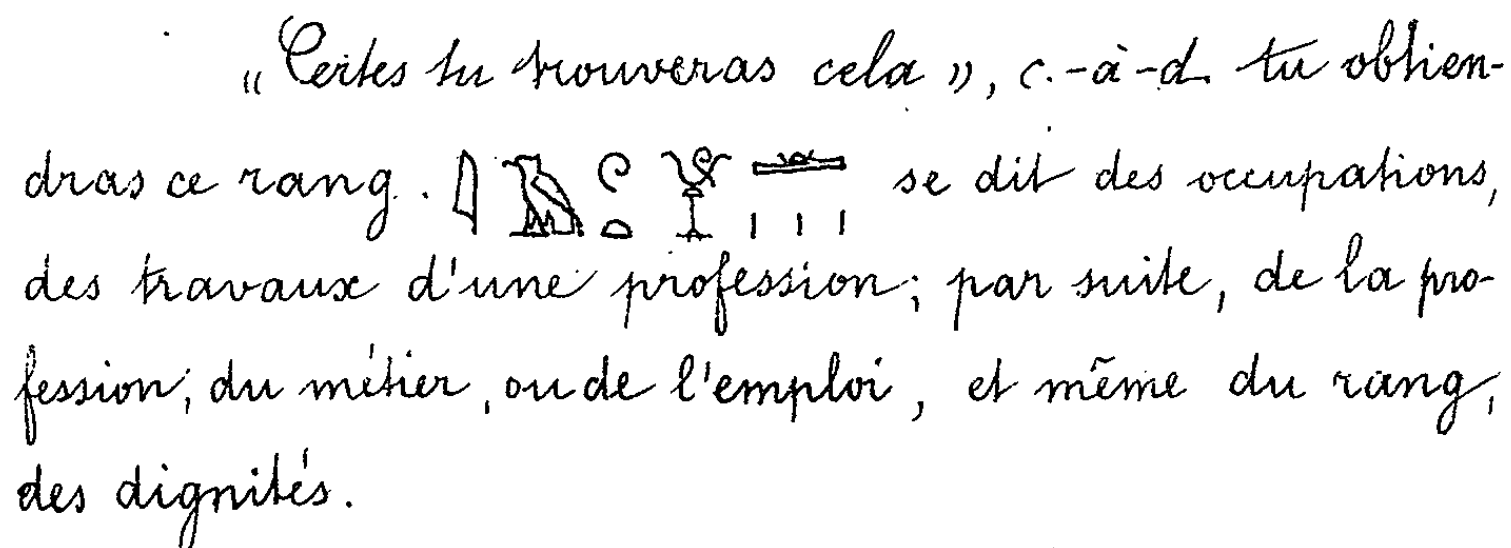 „Certes tu trouveras cela », c.-à-d. tu obtien-
dras ce rang. 𓇋𓄿𓏲𓏏𓏛𓏥 se dit des occupations,
des travaux d'une profession; par suite, de la pro-
fession, du métier, ou de l'emploi, et même du rang,
des dignités.